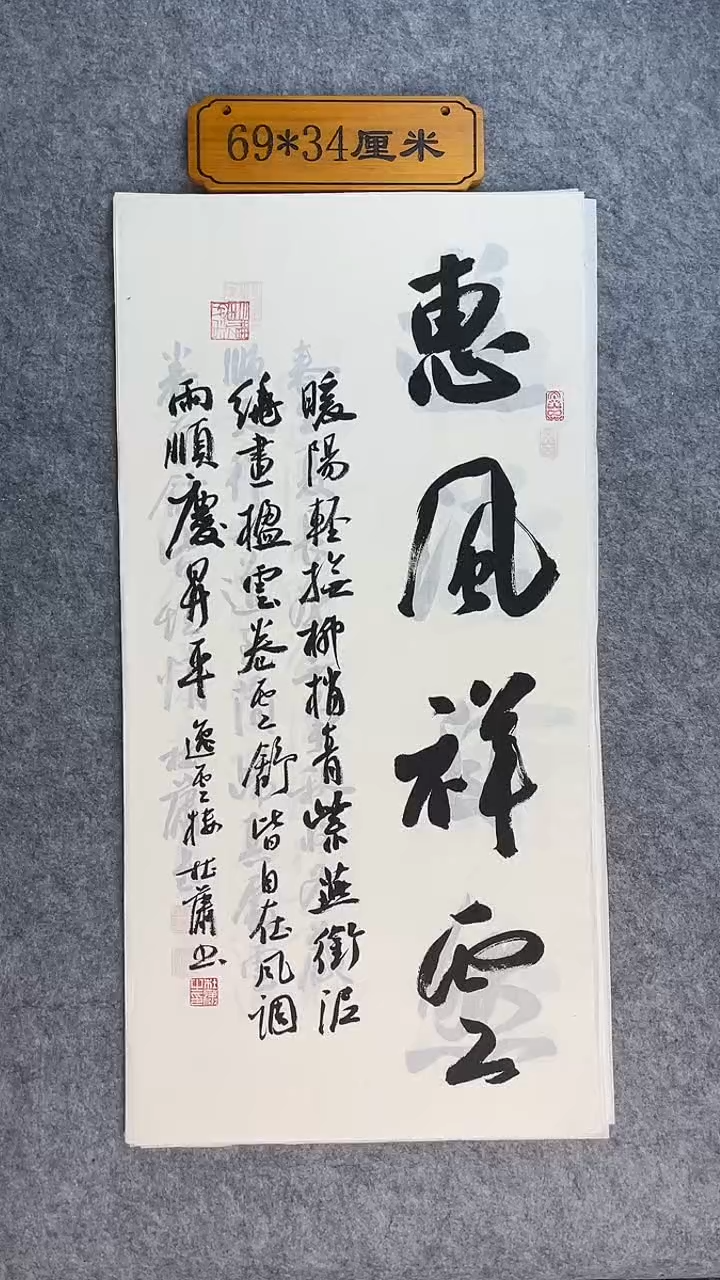 69*34厘米
惠風祥雲
暖陽輕撫柳梢青紫燕銜泥
繞畫楹雲卷雲舒皆自在风调
雨順慶昇平逸雲楼杜蕭书